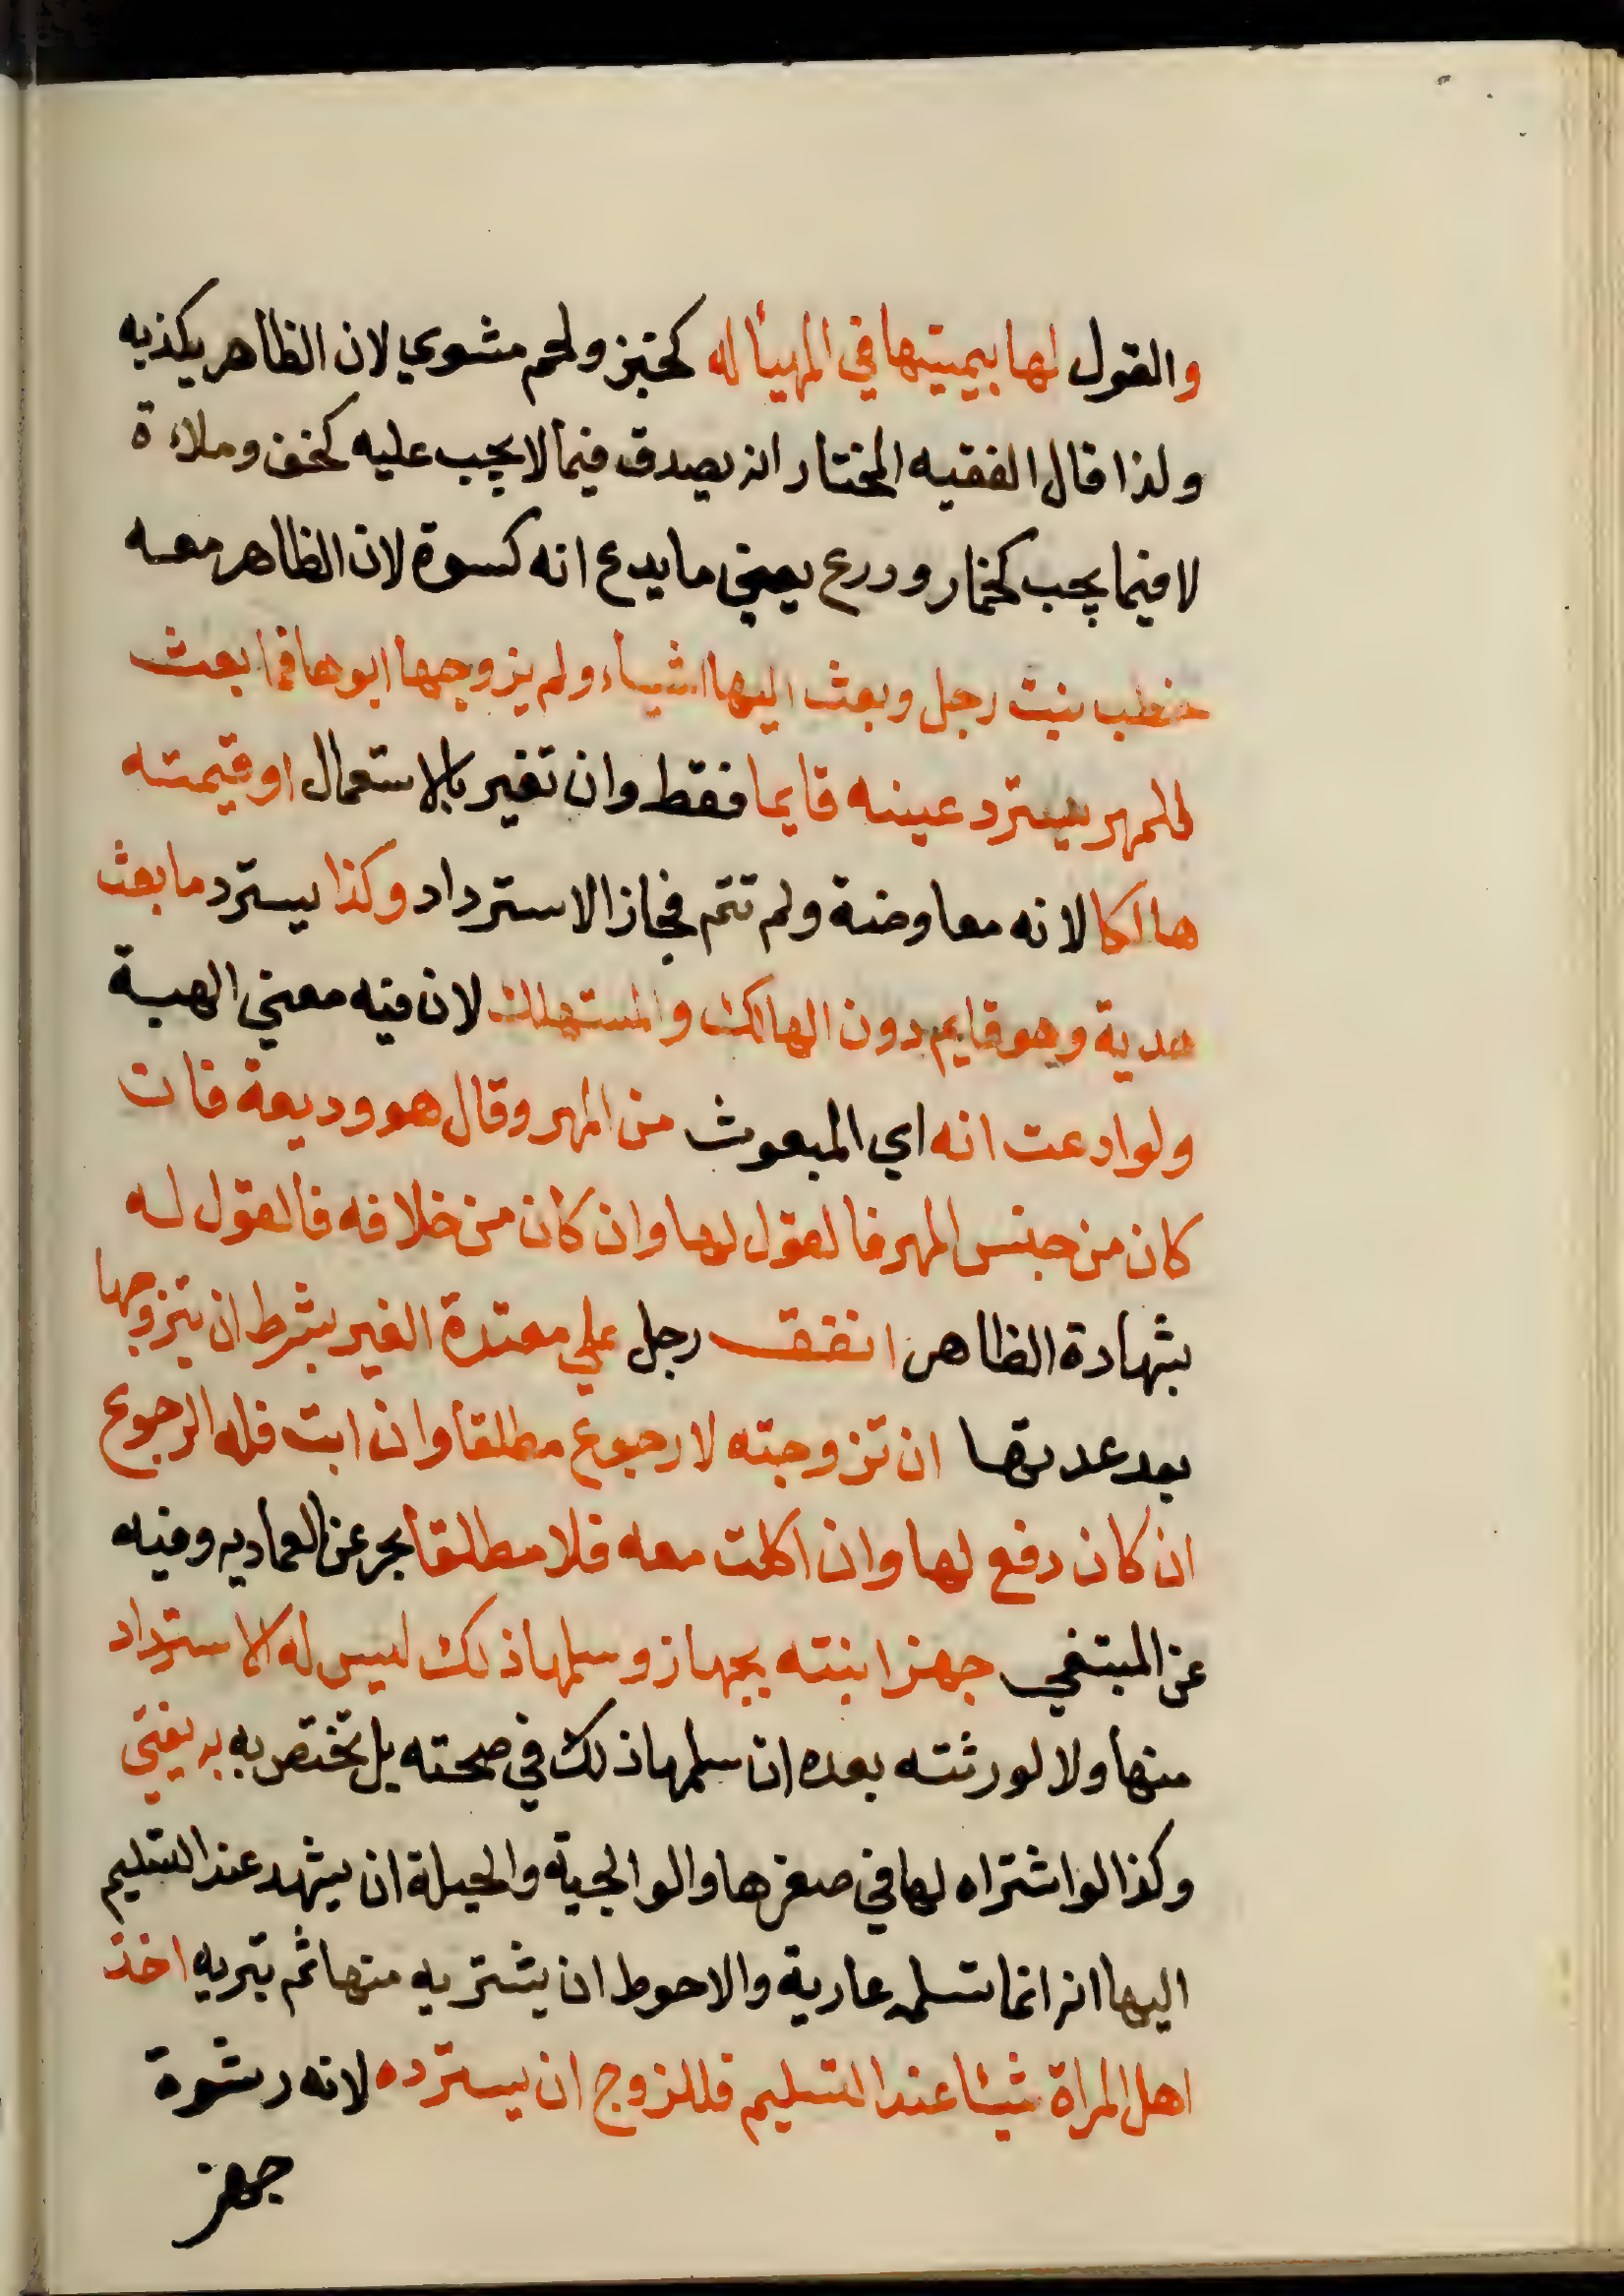 والقول لها بيمينها في المهيأ له كخبز ولحم مشوي لان الظاهر يكذبه
ولذا قال الفقيه المختار انه يصدق فيما لا يجب عليه كخف وملاءة
لا فيما يجب كخمار ودرع يعني ما يدع انه كسوة لان الظاهر معه
خطب بنت رجل وبعث اليها اشياء ولم يزوجها ابوها فما بعث
للمهر يسترد عينه قايما فقط وان تغير بالاستعمال او قيمته
هالكا لانه معاوضة ولم تتم فجاز الاسترداد وكذا يسترد ما بعث
هدية وهو قايم دون الهالك والمستهلك لان فيه معني الهبة
ولو ادعت انه اي المبعوث من المهر وقال هو وديعة فان
كان من جنس المهر فالقول لها وان كان من خلافه فالقول له
بشهادة الظاهر انفق رجل علي معتدة الغير بشرط ان يتزوجها
بعد عدتها ان تزوجته لا رجوع مطلقا وان ابت فله الرجوع
ان كان دفع لها وان اكلت معه فلا مطلقا بحر عن العماديه وفيه
عن المبتغي جهز ابنته بجهاز وسلمها ذلك ليس له الاسترداد
منها ولا لورثته بعده ان سلمها ذلك في صحته بل تختص به به يفتي
وكذا لو اشتراه لها في صغرها والوالجية والحيلة ان يشهد عند التسليم
اليها انه انما تسلمه عارية والاحوط ان يشتريه منها ثم تبريه اخذ
اهل المراة شيئا عند التسليم فللزوج ان يسترده لانه رشوة
جهز